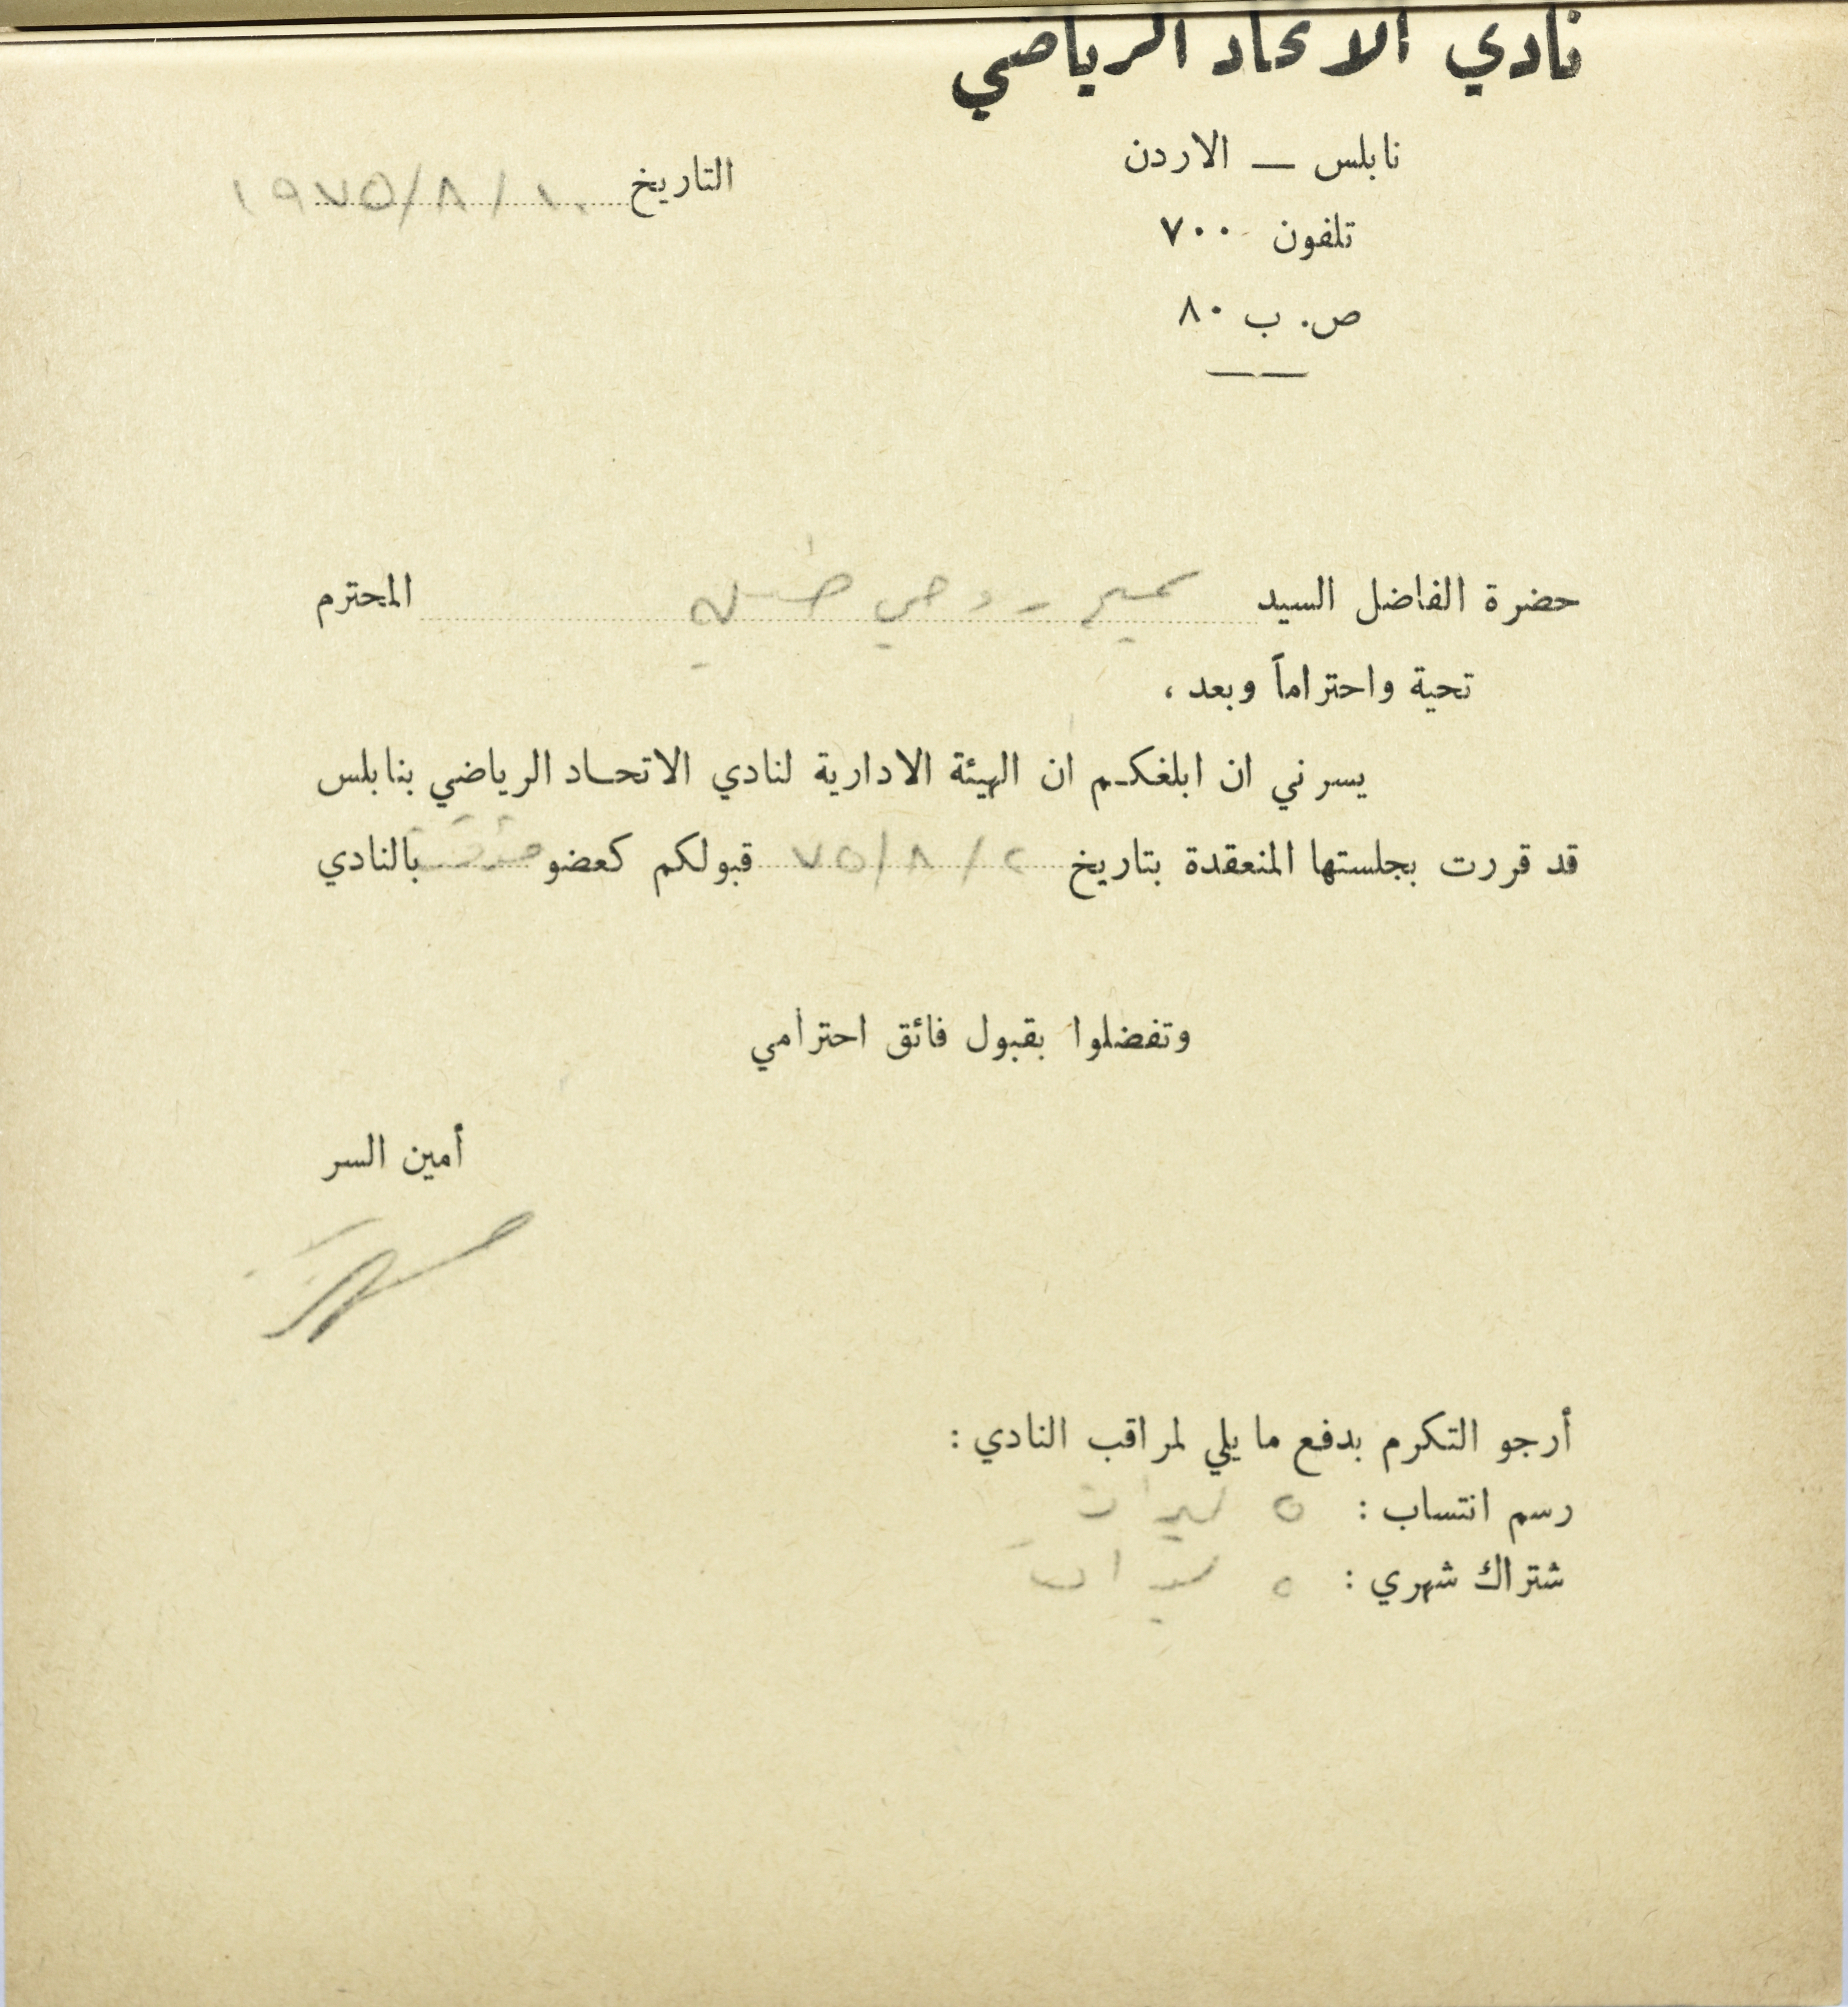 نادي الاتحاد الرياضي
نابلس — الاردن
التاريخ ١٩٧٥/٨/١٠
تلفون ٧٠٠
ص. ب ٨٠
حضرة الفاضل السيد سميح روحي المحترم
تحية واحتراماً وبعد ،
يسرني ان ابلغكم ان الهيئة الادارية لنادي الاتحاد الرياضي بنابلس
قد قررت بجلستها المنعقدة بتاريخ ٢ / ٨ / ٧٥ قبولكم كعضو مؤقت بالنادي
وتفضلوا بقبول فائق احترامي
أمين السر
أرجو التكرم بدفع ما يلي لمراقب النادي :
رسم انتساب : ٥ ليرات
شتراك شهري : ٥ ليرات